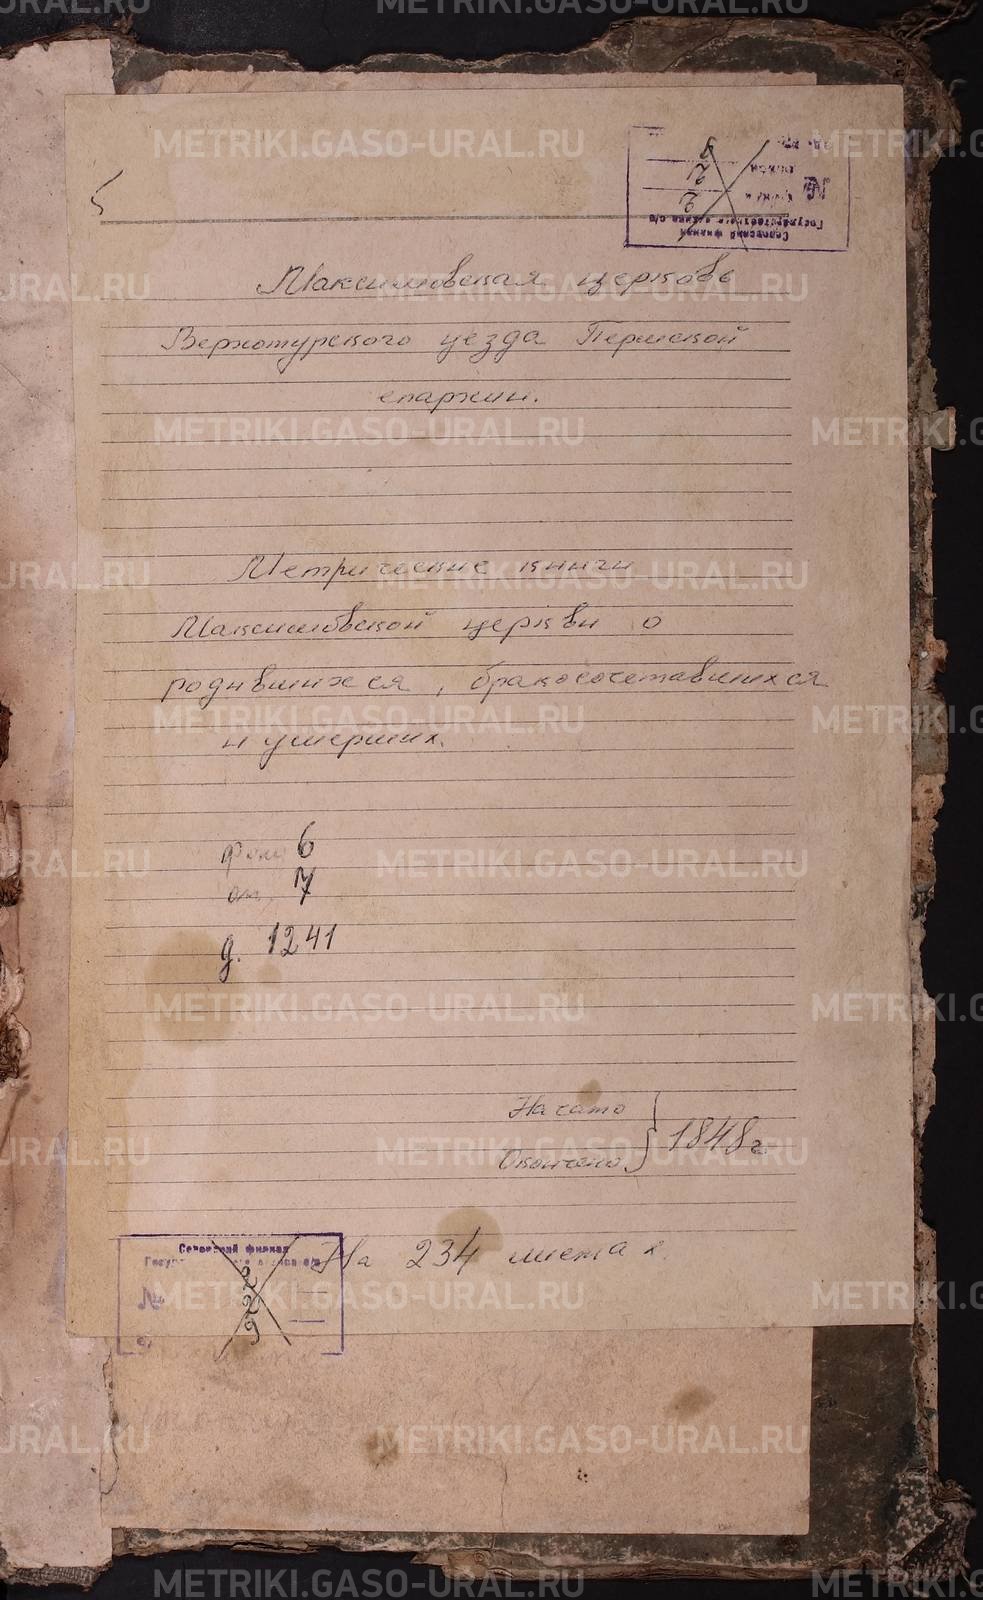 Максимовская церковь
Верхотурского уезда Пермской
епархии.
Метрические книги
Максимовской церкви о
родившихся, бракосочетавшихся
и умерших.
фонд 6
оп. 7
д. 1241
Начато
Окончено } 1848 г.
На 234 листах.
Серовский филиал
Государственного архива с/о
№
Серовский филиал
№
METRIKI.GASO-URAL.RU